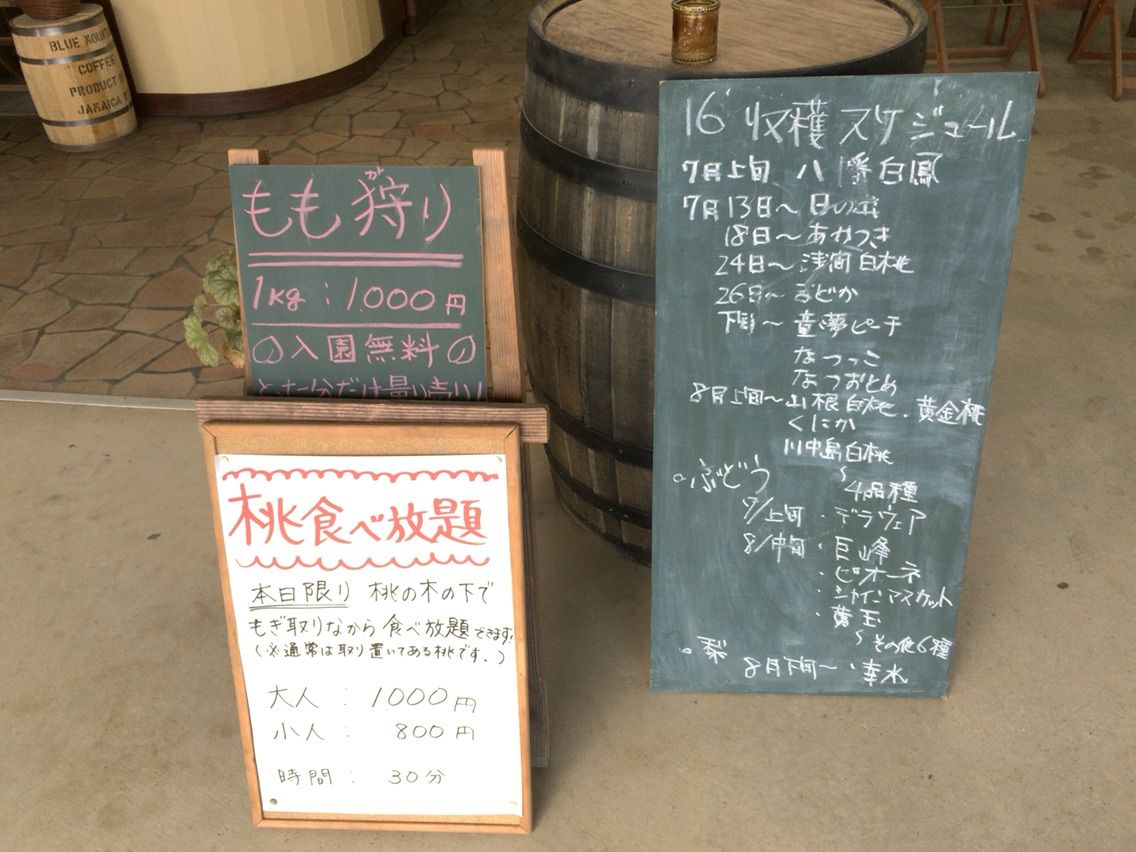 BLUE MOUNT
COFFEE
PRODUCT OF
JAMAICA
もも狩り
が
1kg : 1.000円
入園無料
とった分だけ量り売り!
桃食べ放題
本日限り 桃の木の下で
もぎ取りながら食べ放題できます!
(※通常は取り置いてある桃です.)
大人 : 1000円
小人 : 800円
時間 : 30分
16' 収穫スケジュール
7月上旬 八幡白鳳
7月13日〜 日の出
18日〜 あかつき
24日〜 浅間白桃
26日〜 まどか
下旬〜 童夢ピーチ
なつっこ
なつおとめ
8月上旬〜 山根白桃・黄金桃
くにか
川中島白桃
〜4品種
ぶどう
7/上旬 ・デラウェア
8/中旬 ・巨峰
・ピオーネ
・シャインマスカット
・黄玉
〜その他6種
梨
8月下旬〜 ・幸水